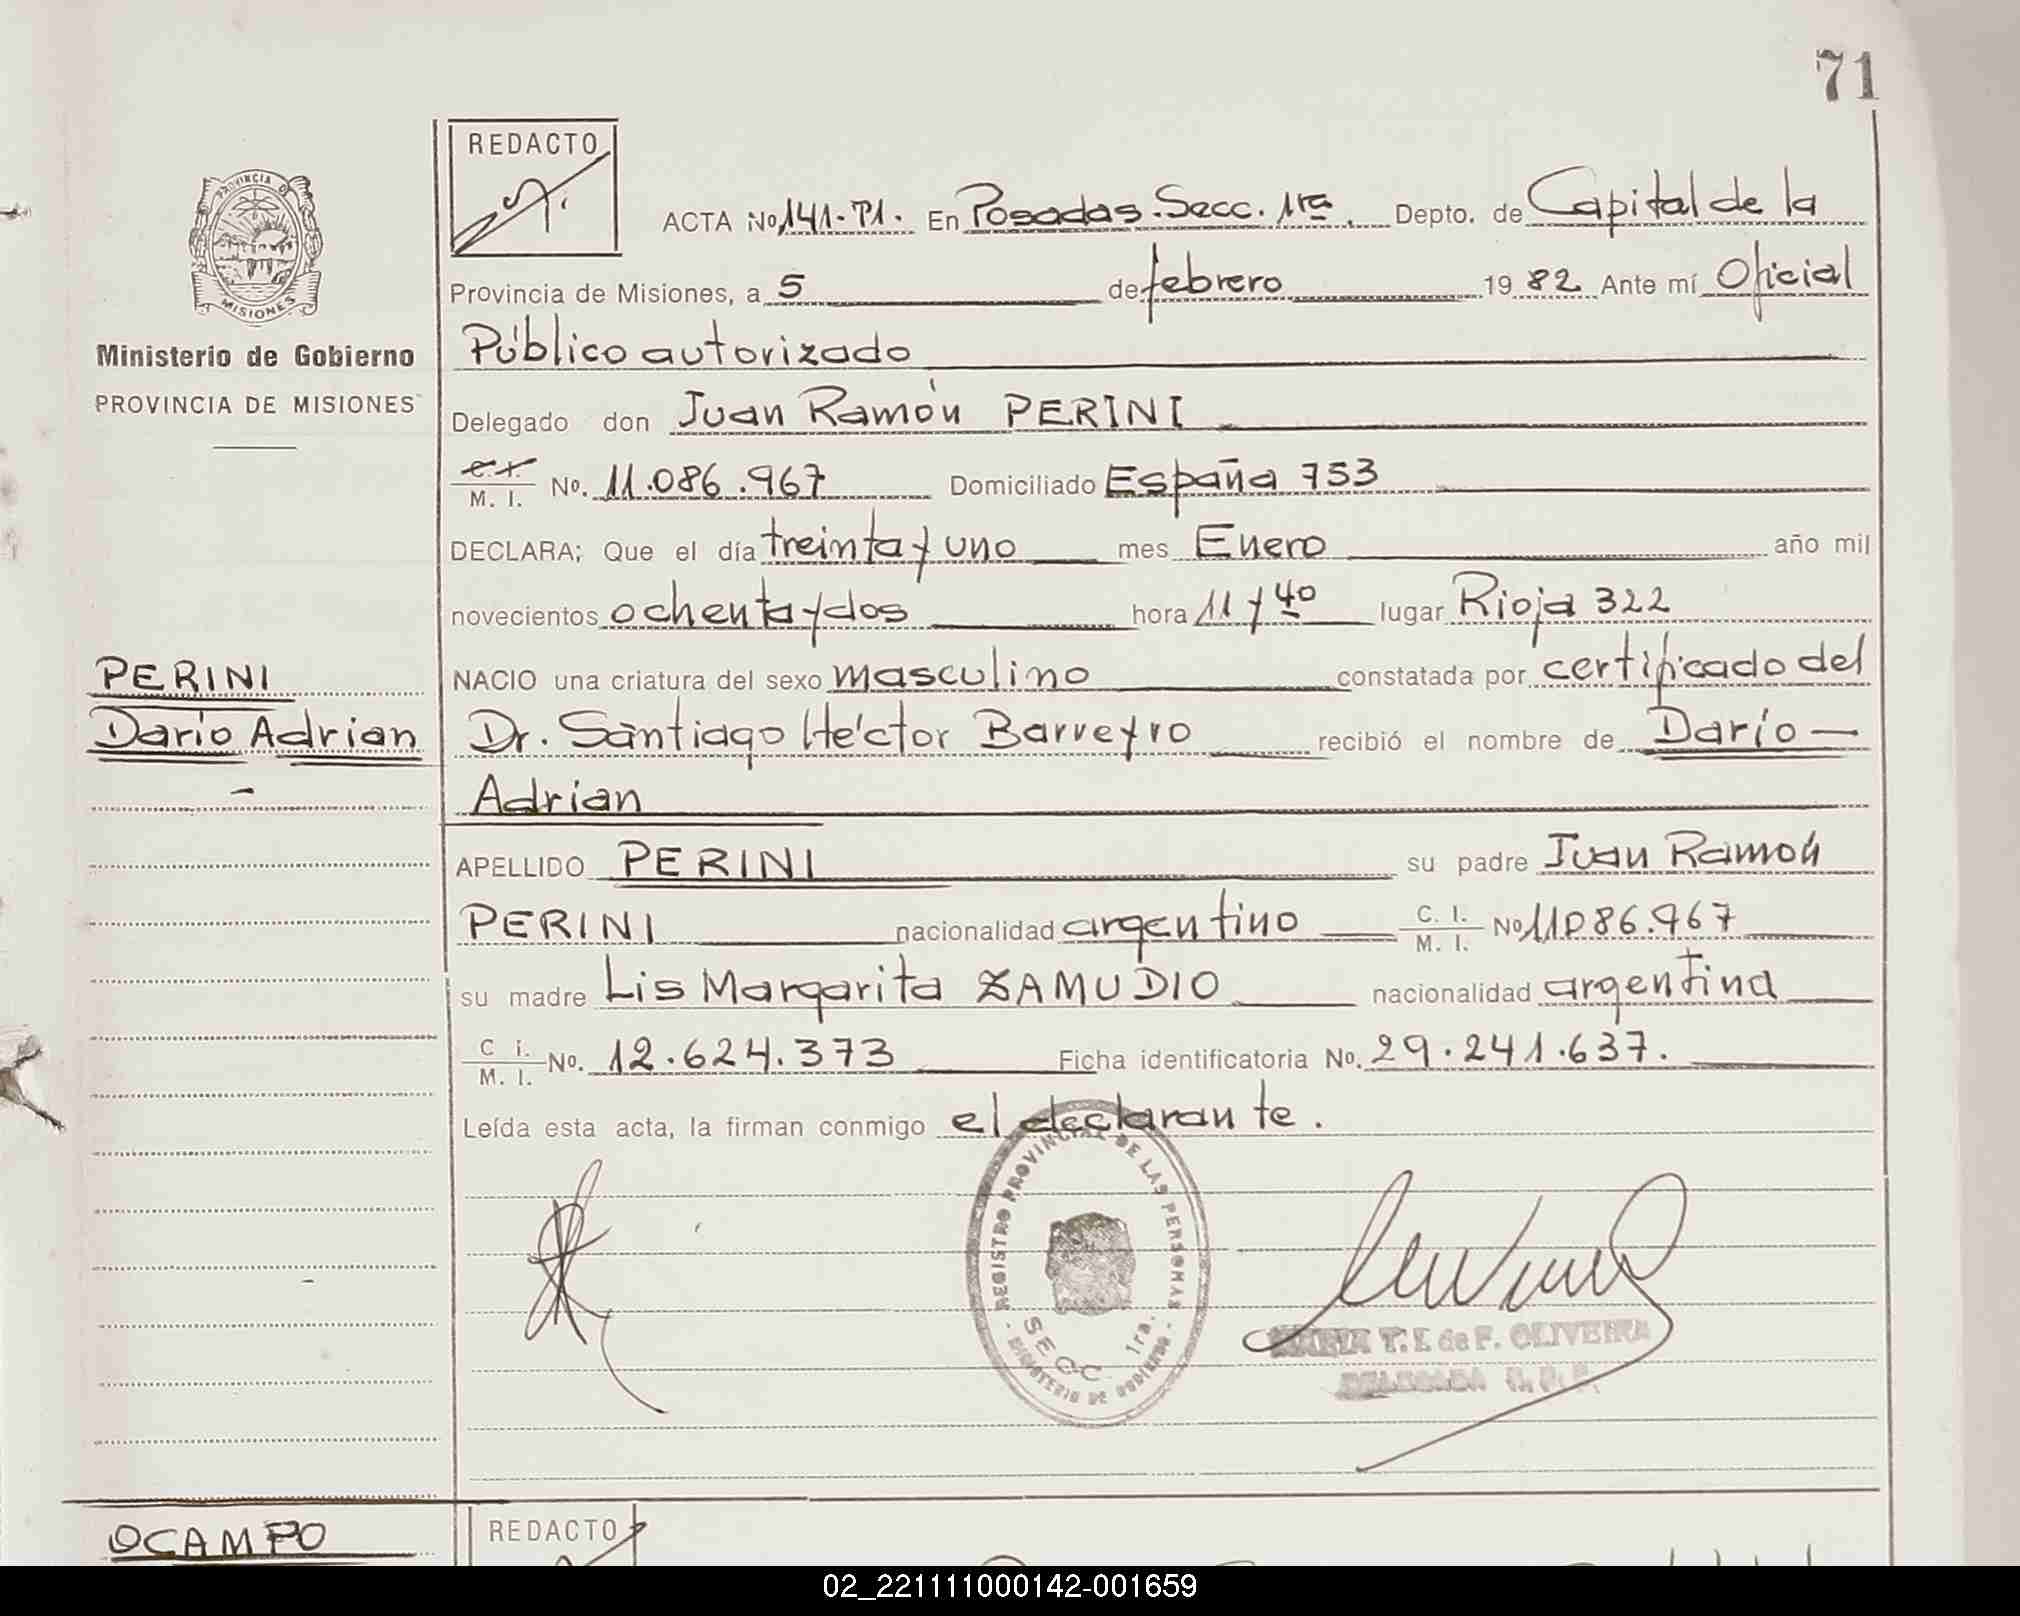 71
REDACTO
ACTA No. 141-T1. En Posadas.Secc. 1ra. Depto. de Capital de la
Provincia de Misiones, a 5 de febrero 1982 Ante mí Oficial
Público autorizado
PROVINCIA DE MISIONES
Ministerio de Gobierno
PROVINCIA DE MISIONES
Delegado don Juan Ramón PERINI
M. I. No. 11.086.967 Domiciliado España 753
DECLARA; Que el día treinta y uno mes Enero año mil
novecientos ochenta y dos hora 11 y 40 lugar Rioja 322
PERINI
Darío Adrian
NACIO una criatura del sexo masculino constatada por certificado del
Dr. Santiago Héctor Barreyro recibió el nombre de Darío —
Adrian
APELLIDO PERINI su padre Juan Ramón
PERINI nacionalidad argentino C. I. M. I. No 11086.967
su madre Lis Margarita ZAMUDIO nacionalidad argentina
C. I. M. I. No. 12.624.373 Ficha identificatoria No. 29.241.637.
Leída esta acta, la firman conmigo el declarante.
REGISTRO PROVINCIAL DE LAS PERSONAS
SECC. 1ra.
- MINISTERIO DE GOBIERNO -
MARIA T. F. de F. OLIVEIRA
DELEGADA
OCAMPO
REDACTO
02_221111000142-001659